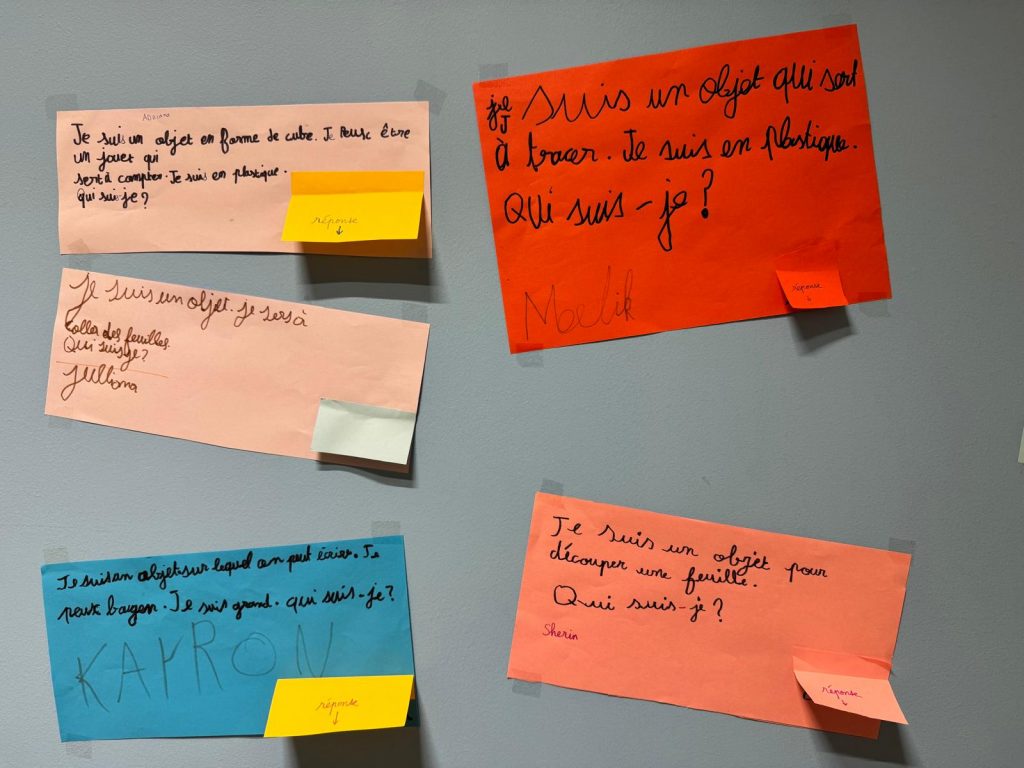 Adriana
Je suis un objet en forme de cube. Je peusc être
un jouet qui
sert à compter. Je suis en plastique.
qui sui je?
réponse
↓
Je suis un objet. je sers à
coller des feuilles.
Qui suis je?
Julliana
Je suis un objet sur lequel on peut écrire. Je
peux bouger. Je suis grand. qui suis-je?
KAYRON
réponse
↓
je suis un objet qui sert
à tracer. Je suis en plastique.
Qui suis-je?
Maelik
réponse
↓
Je suis un objet pour
découper une feuille.
Qui suis-je?
Sherin
réponse
↓